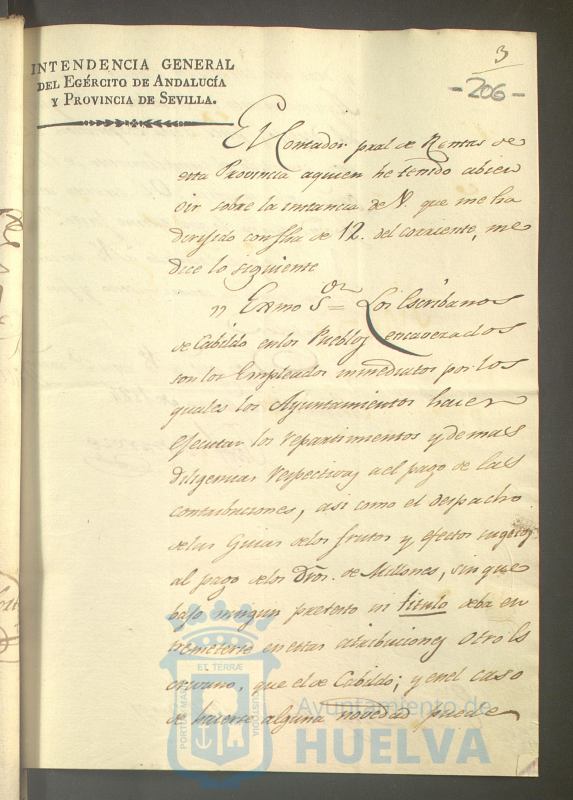 INTENDENCIA GENERAL
DEL EGÉRCITO DE ANDALUCÍA
Y PROVINCIA DE SEVILLA.
3
-206-
El Contador pral de Rentas de
esta Provincia aquien he tenido abien
oir sobre la instancia de V. que me ha
dirijido con fha de 12. del corriente, me
dice lo siguiente
" Exmo Sor = Los Escribanos
de Cabildo en los Pueblos encavezados
son los Empleados inmediatos por los
quales los Ayuntamientos hacen
ejecutar los repartimientos y demas
diligencias respectivas ael pago de las
contribuciones, asi como el despacho
de las Guias de los frutos y efectos sugetos
al pago de los dros. de Millones, sin que
bajo ningun pretexto ni titulo deba en
tremeterse en estas atribuciones otro Es
crivano, que el de Cabildo; y en el caso
de hacerse alguna novedad puede
PORTUS MARIS
ET TERRÆ
CUSTODIA
Ayuntamiento de
HUELVA